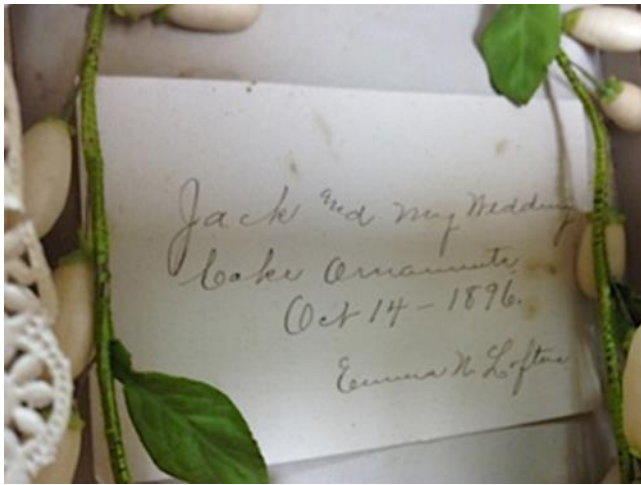 Jack and my Wedding
Cake Ornaments
Oct 14 - 1896.
Emma N. Loftus